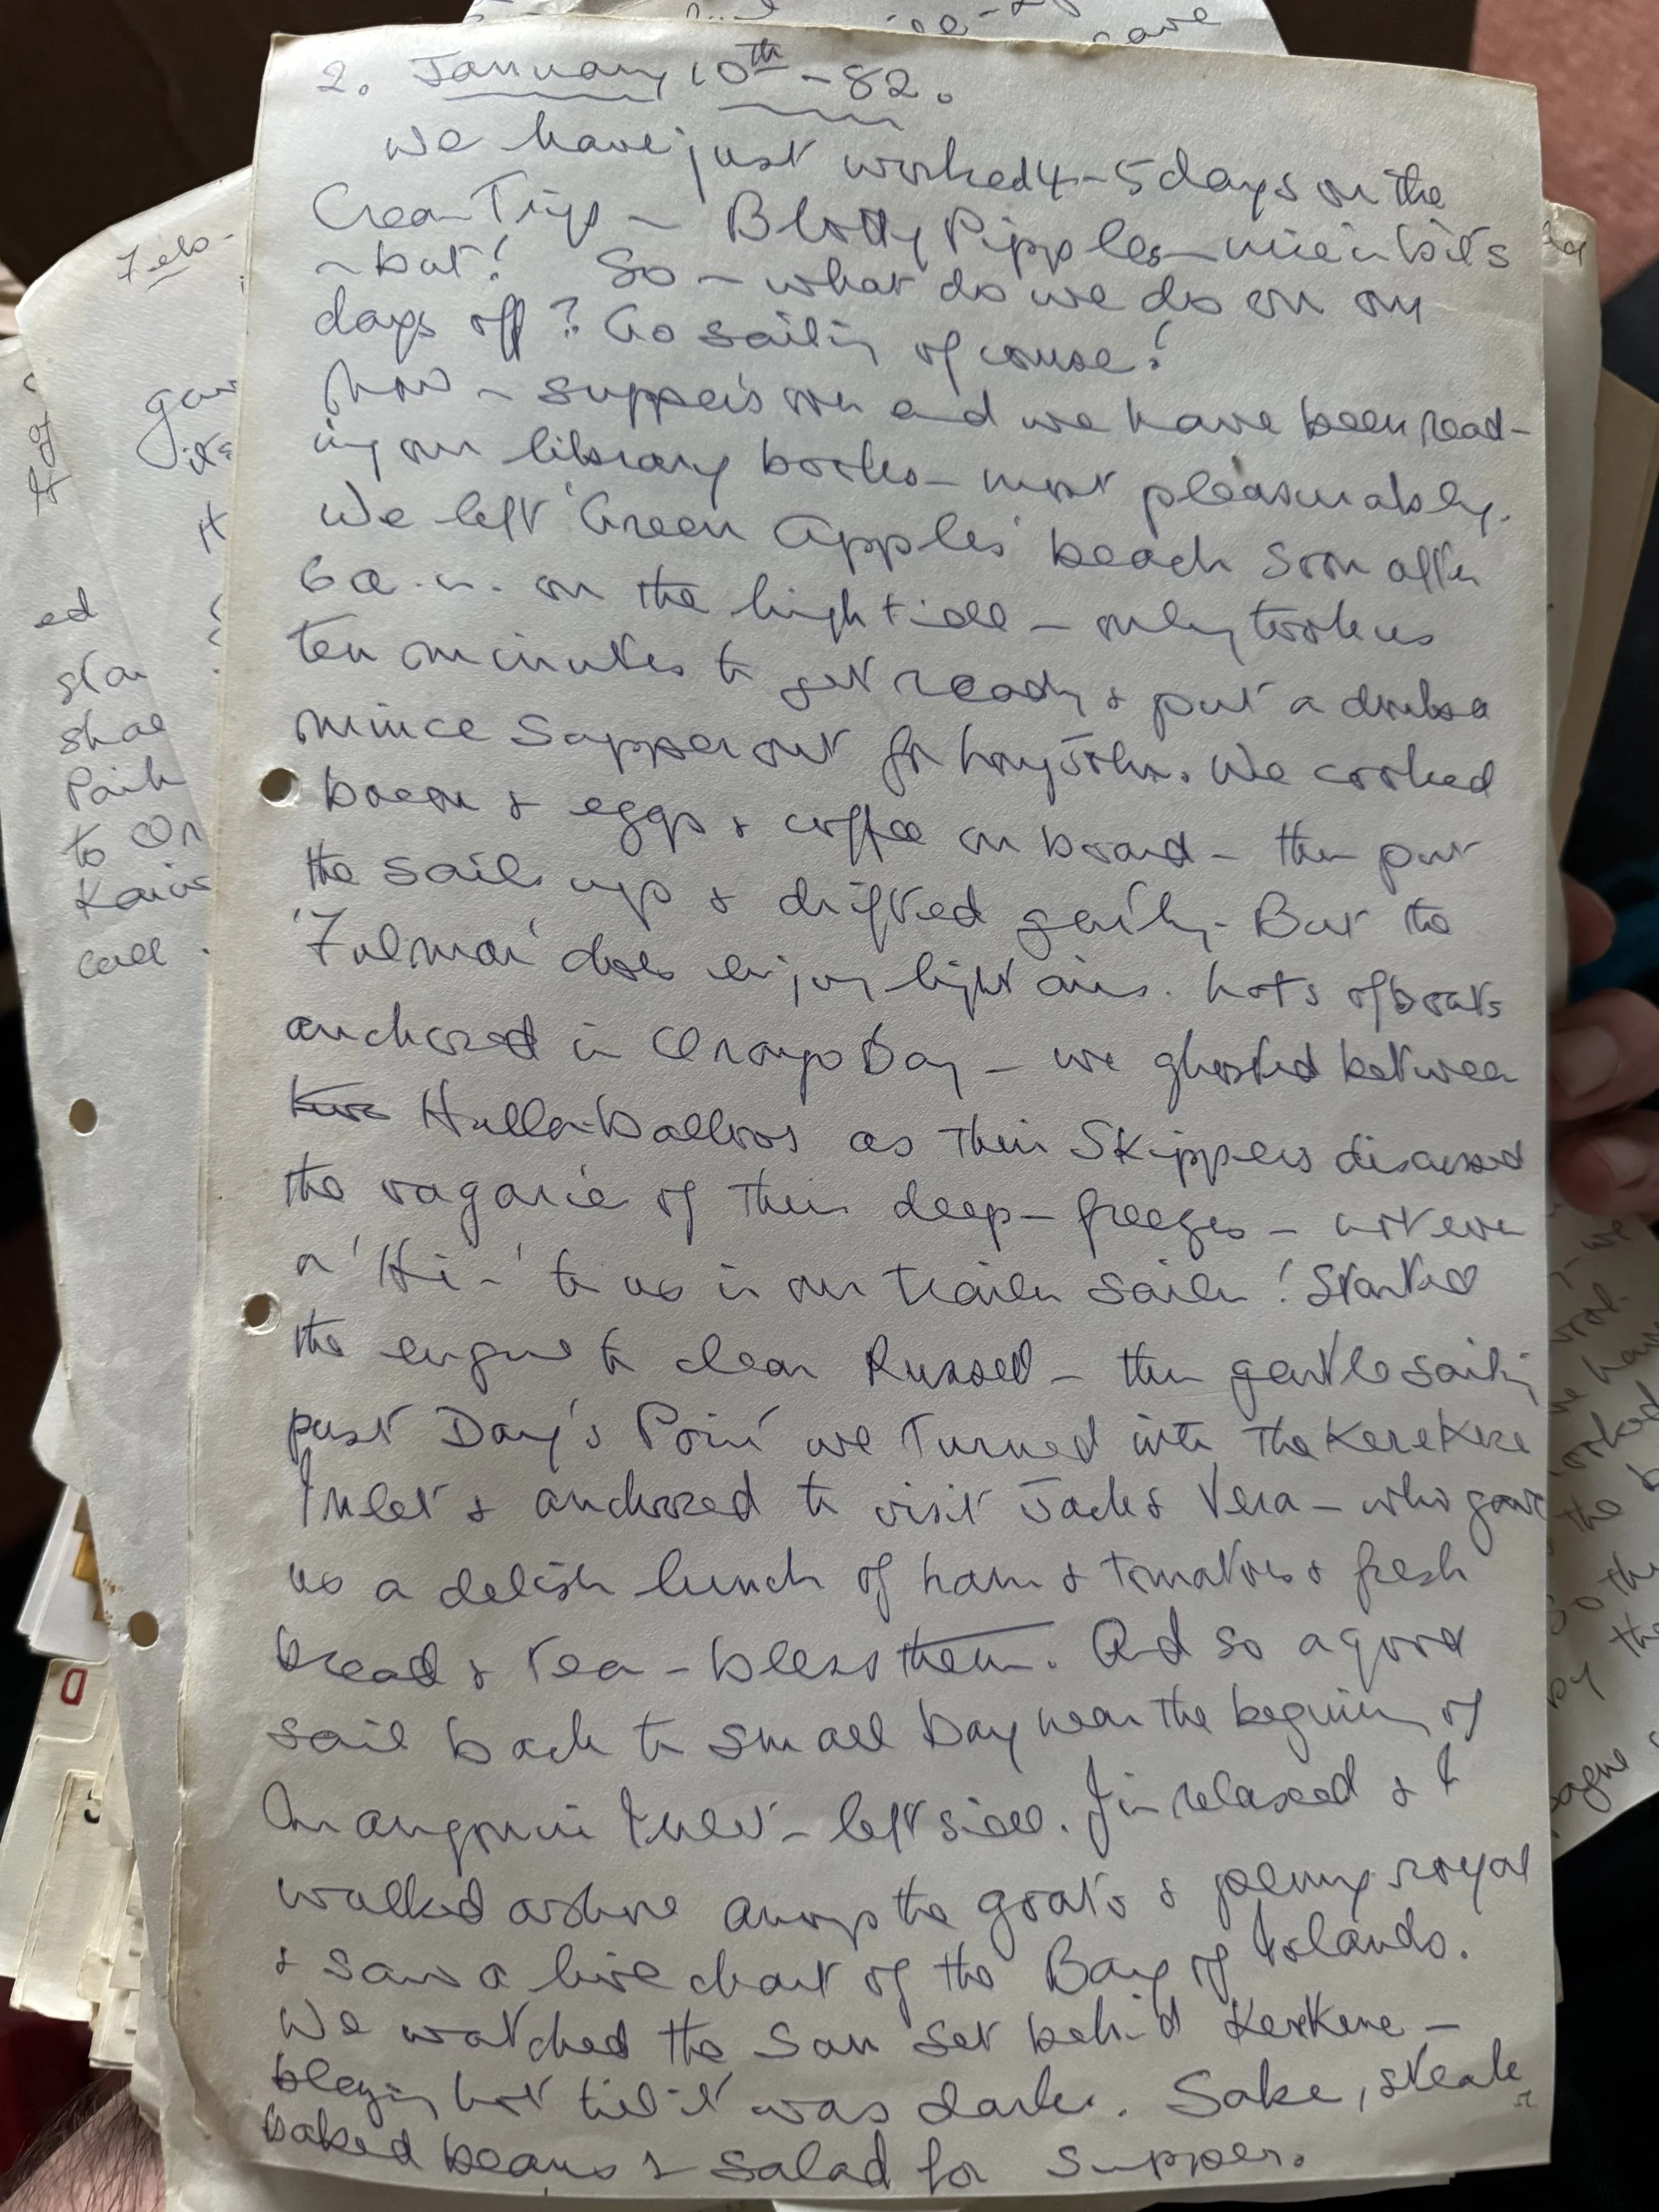 2. January 10th - 82.
We have just worked 4-5 days on the
Cream Trips - Blotty Pipples - nice in bits
- but! So - what do we do on our
days off? Go sailing of course!
Now - supper's on and we have been read-
ing our library books - most pleasurably.
We left 'Green Apples' beach soon after
6 a.m. on the high tide - only took us
ten minutes to get ready & put a
mince supper out for Long John. We cooked
bacon & eggs & coffee on board - then put
the sails up & drifted gently. But the
'Fulmar' does enjoy light airs. Lots of boats
anchored in Bay - we ghosted between
two Hullaballoos as their Skippers discussed
the vagaries of their deep-freezes - not even
a 'Hi-' to us in our trailer sailer! Started
the engine to clear Russell - then gentle sailing
past Day's Point we turned into the Kerekere
Inlet & anchored to visit Jack & Vera - who gave
us a delish lunch of ham & tomatoes & fresh
bread & tea - bless them. And so a good
sail back to small bay near the beginning of
Mangonui Inlet - left side. Jim relaxed & I
walked ashore among the goats & penny royal
& saw a live chart of the Bay of Islands.
We watched the sun set behind Kerekere -
blazing hot till it was dark. Sake, steak
baked beans & salad for supper.